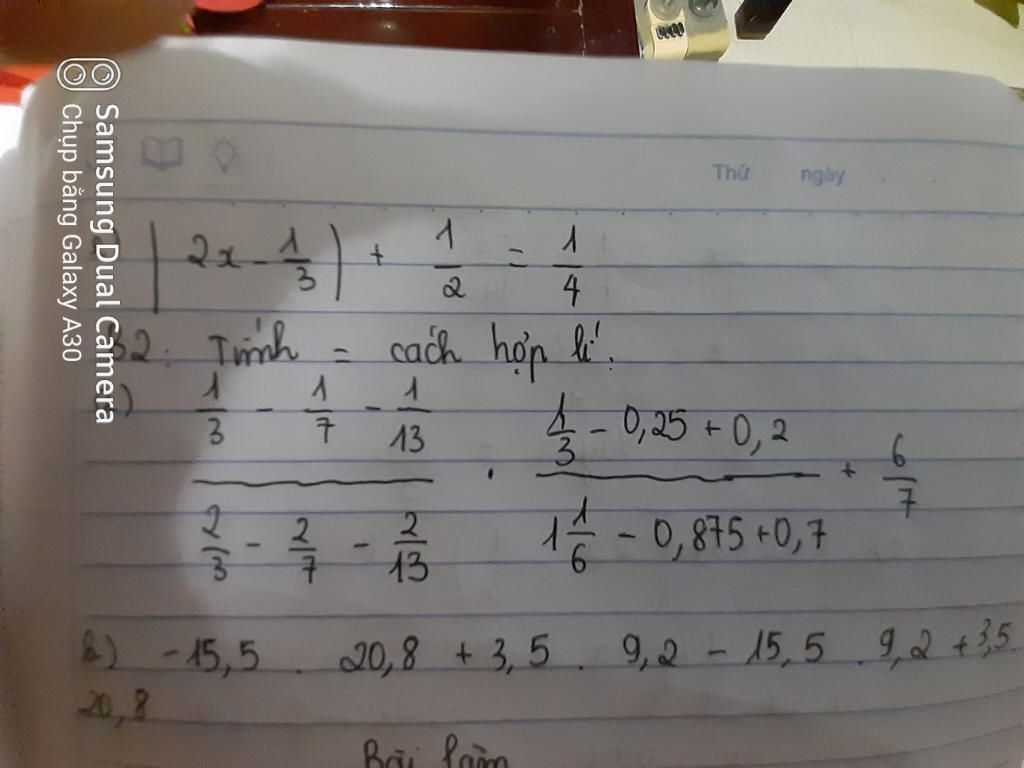 Samsung Dual Camera
Chụp bằng Galaxy A30
Thứ ngày
) | 2x - 1/3 | + 1/2 = 1/4
B2: Tính = cách hợp lí:
) (1/3 - 1/7 - 1/13)/(2/3 - 2/7 - 2/13) . (1/3 - 0,25 + 0,2)/(1 1/6 - 0,875 + 0,7) + 6/7
b) -15,5 . 20,8 + 3,5 . 9,2 - 15,5 . 9,2 + 3,5.
20,8
Bài làm